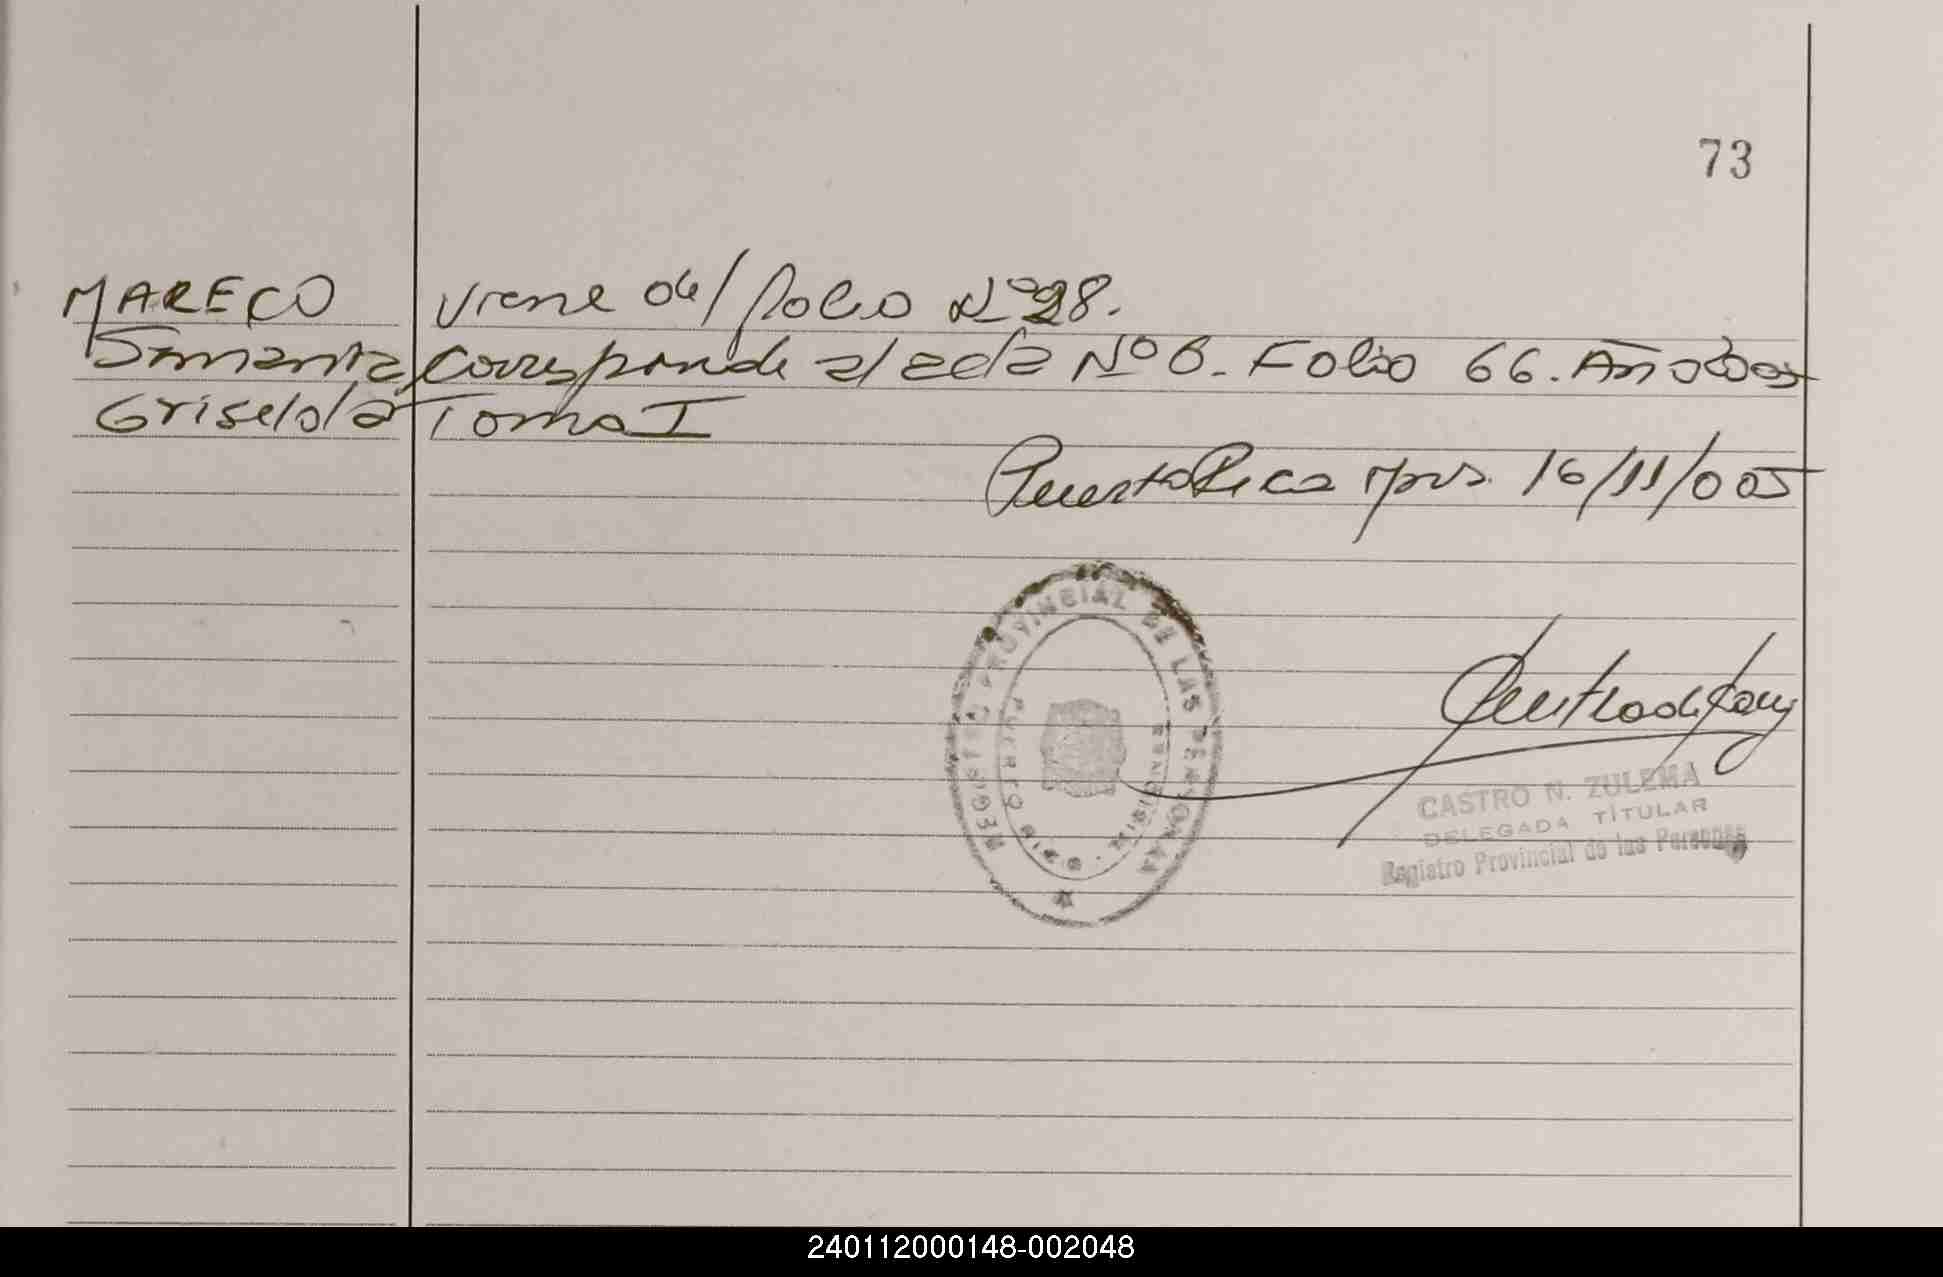 73
MARECO
Viene del folio Nº 28.
Samanta
Corresponde al acta Nº 6. Folio 66. Año 2005
Griselda
Tomo I
Puerto Rica Mnes. 16/11/005
REGISTRO PROVINCIAL DE LAS PERSONAS
PUERTO RICO - MISIONES
CASTRO N. ZULEMA
DELEGADA TITULAR
Registro Provincial de las Personas
240112000148-002048